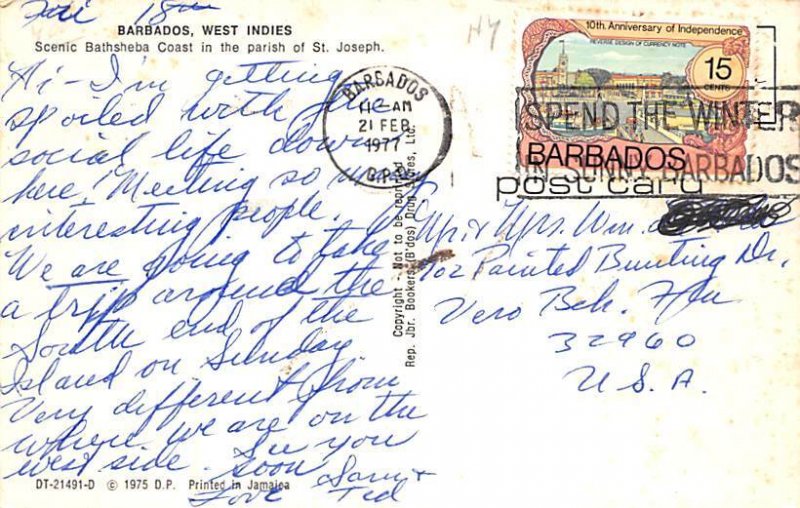 Fri 18th
BARBADOS, WEST INDIES
Scenic Bathsheba Coast in the parish of St. Joseph.
Hi - I'm getting
spoiled with
social life down
here! Meeting so many
interesting people.
We are going to take
a trip around the
South end of the
Island on Sunday
Very different from
where we are on the
west side. See you
soon
Love Sam &
Ted
DT-21491-D © 1975 D.P. Printed in Jamaica
Copyright - Not to be reproduced
Rep. Jbr. Bookers (B'dos) Drug Stores, Ltd.
BARBADOS
AM
21 FEB
1977
G.P.O.
10th Anniversary of Independence
REVERSE DESIGN OF CURRENCY NOTE
15
CENTS
BARBADOS
SPEND THE WINTER
IN SUNNY BARBADOS
post card
Mr. & Mrs. Wm.
702 Painted Bunting Dr,
Vero Bch. Fla
32960
U.S.A.